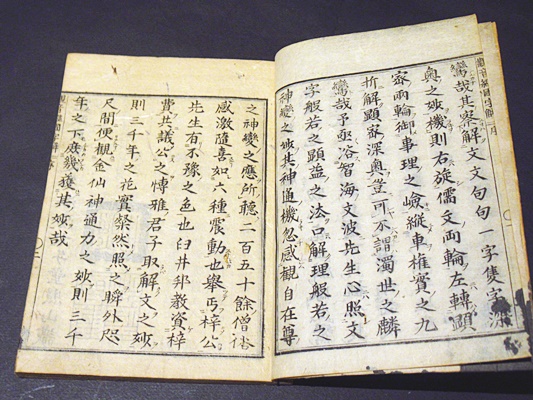 鸞哉其案解文文句句一字隻字深
奧之妙機則右旋儒文兩輪左轉顯
密兩輪御事理之嶮縱車權實之九
折解顯密深奧豈可不謂濁世之麟
鸞哉予亟浴智海文波先生心照文
字般若之顯益之法口解理般若之
神變之妙其神通機忽感觀自在尊
之神變之應所聽二百五十餘僧俗
感激隨喜如六種震動也舉丐梓公
先生有不豫之色也臼井邨教資梓
費共議公之博雅君子取解文之妙
則三千年之花實粲然照之瞬外咫
尺間便觀金仙神通力之妙則三千
年之下庶幾其妙哉